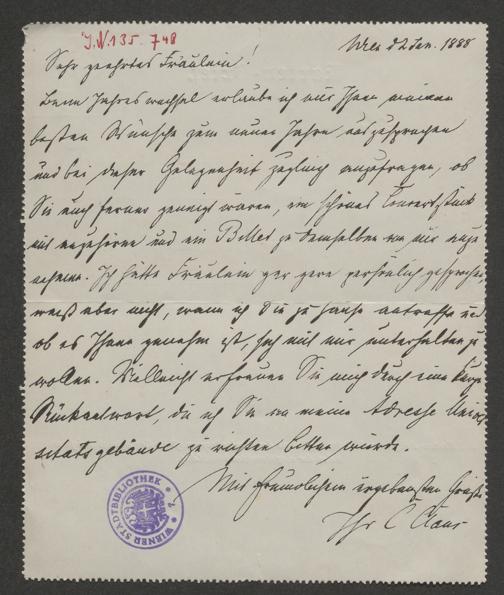 J.N. 135.748
Wien d 2 Jan. 1888
Sehr geehrtes Fräulein!
Beim Jahreswechsel erlaube ich mir Ihnen meinen
besten Wünsche zum neuen Jahre auszusprechen
und bei dieser Gelegenheit zugleich anzufragen, ob
Sie auch ferner geneigt wären, ein schönes Concertstück
mit anzuhören und ein Billet zu demselben von mir anzu
nehmen. Ich hätte Fräulein gar gern persönlich gesprochen,
weiß aber nicht, wann ich Sie zu Hause antreffe und
ob es Ihnen genehm ist, sich mit mir unterhalten zu
wollen. Vielleicht erfreuen Sie mich durch eine kurze
Rückantwort, die ich Sie an meine Adresse Univer
sitätsgebäude zu richten bitten würde.
Mit freundlichem ergebensten Gruße
Ihr C Claus
WIENER STADTBIBLIOTHEK